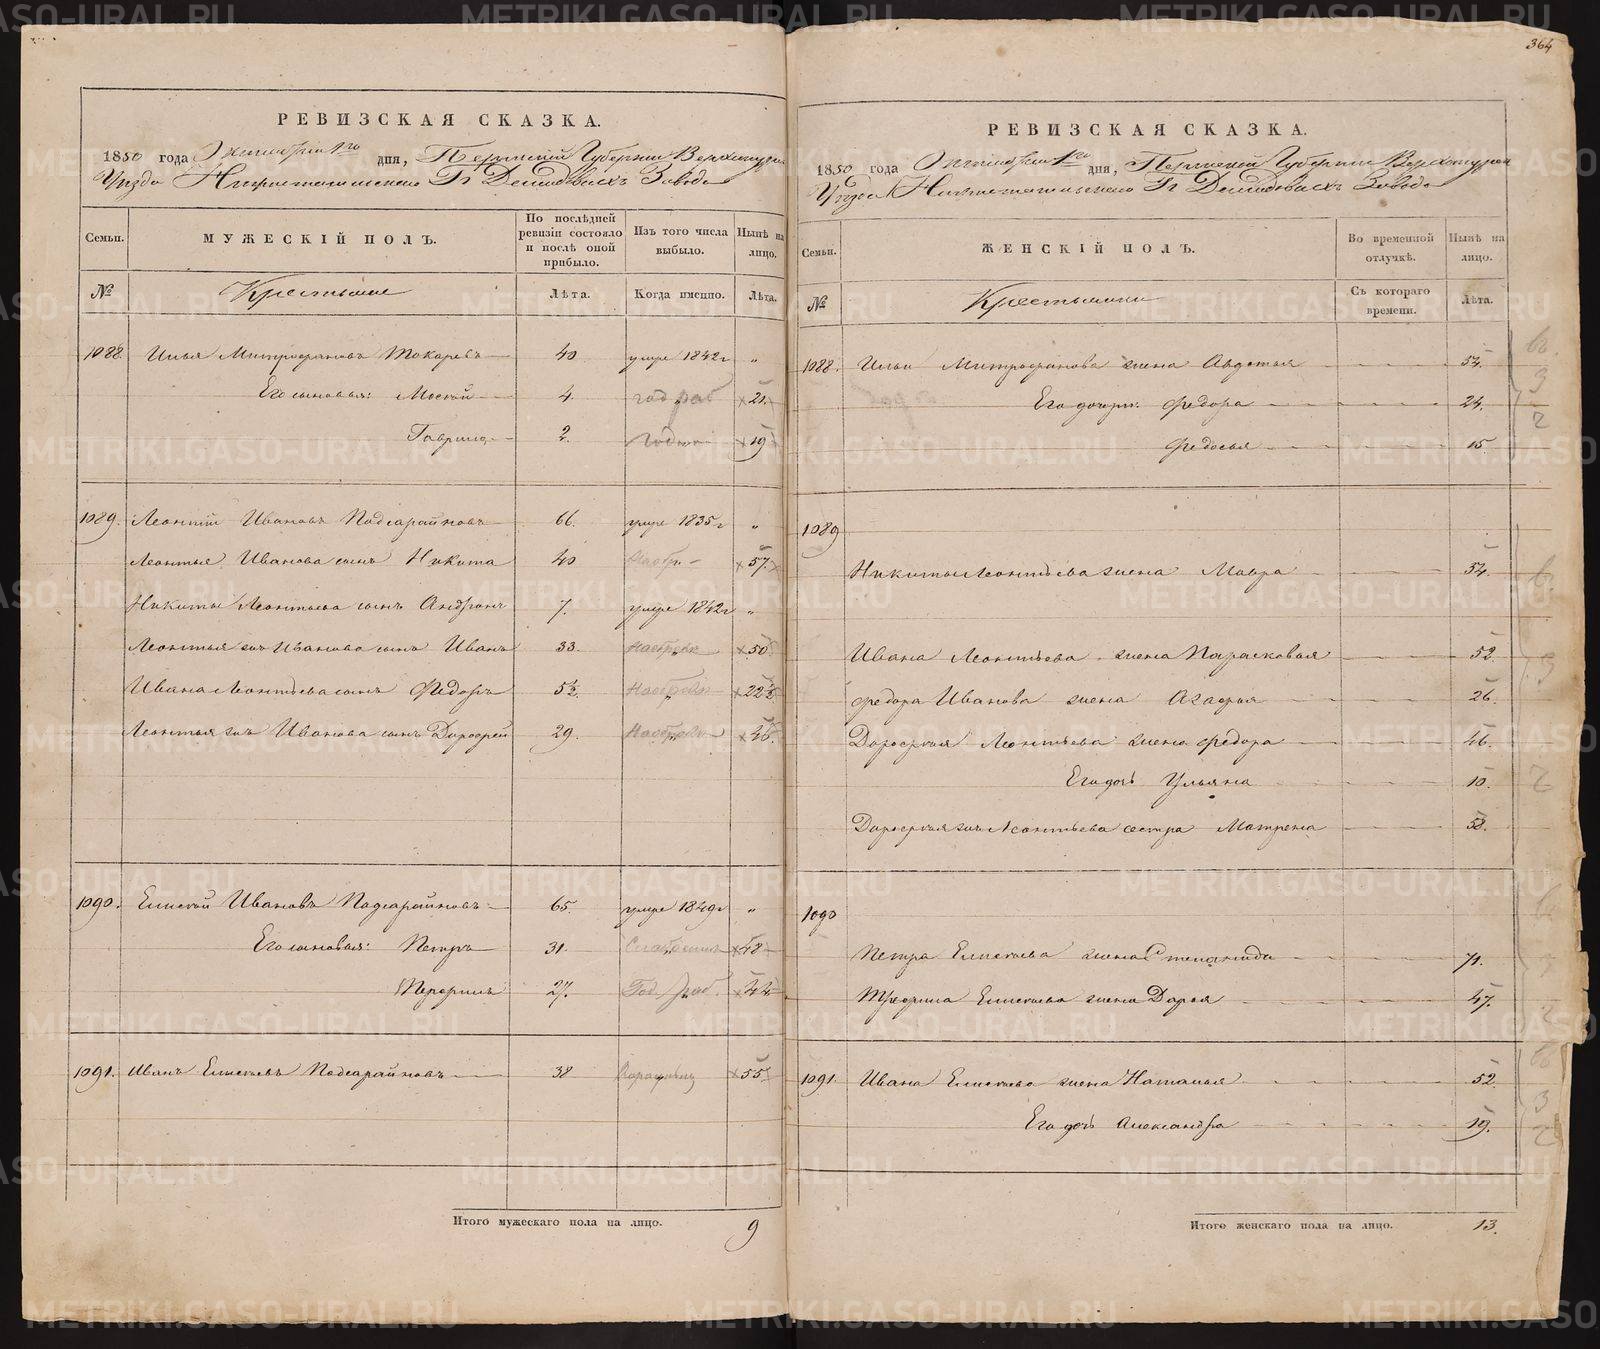 364
РЕВИЗСКАЯ СКАЗКА.
1850 года Октября 1го дня, Пермской Губернии Верхотурск
Уезда Нижнетагильскаго Гг Демидовыхъ Завода
Семьи.
МУЖЕСКІЙ ПОЛЪ.
По послѣдней ревизіи состояло и послѣ оной прибыло.
Изъ того числа выбыло.
Нынѣ на лицо.
№
Крестьяне
Лѣта.
Когда именно.
Лѣта.
1088. Илья Митрофановъ Токаревъ 40 умре 1842 г "
Его сыновья: Мосей 4. год раб 21.
Гаврила 2. 19
1089. Леонтій Ивановъ Подсарайновъ 66. умре 1835 г "
Леонтья Иванова сынъ Никита 40 57.
Никиты Леонтьева сынъ Андронъ 7. умре 1842 г "
Леонтья жъ Иванова сынъ Иванъ 33. 50
Ивана Леонтьева сынъ Федоръ 5½ 22½
Леонтья жъ Иванова сынъ Дорофей 29. 46.
1090. Елисей Ивановъ Подсарайновъ 65. умре 1849 г "
Его сыновья: Петръ 31. 48
27. Год. раб. 44
1091. Иванъ Елисеевъ Подсарайновъ 38 55
Итого мужескаго пола на лицо. 9
РЕВИЗСКАЯ СКАЗКА.
1850 года Октября 1го дня, Пермской Губернии Верхотурск
Уезда Нижнетагильскаго Гг Демидовыхъ Завода
Семьи.
ЖЕНСКІЙ ПОЛЪ.
Во временной отлучкѣ.
Нынѣ на лицо.
№
Крестьянки
Съ котораго времени.
Лѣта.
1088. Ильи Митрофанова жена Авдотья 54.
Его дочери: Федора 24.
Федосья 15.
1089
Никиты Леонтьева жена Мавра 54.
Ивана Леонтьева жена Парасковья 52
Федора Иванова жена Агафья 26.
Дорофея Леонтьева жена Федора 46.
Его дочь Ульяна 10.
Дорофея жъ Леонтьева сестра Матрена 58.
1090
Петра Елисеева жена Степанида 71.
Трофима Елисеева жена Дарья 47.
1091. Ивана Елисеева жена Наталья 52
Его дочь Александра 19.
Итого женскаго пола на лицо. 13.
METRIKI.GASO-URAL.RU